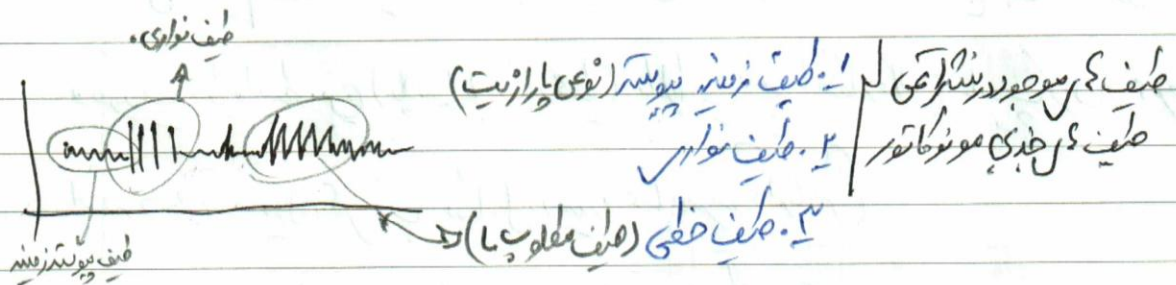 طیف های موجود در نشر اتمی
طیف های خروجی مونوکاتور
۱. طیف زمینه پیوسته (نوعی پارازیت)
۲. طیف نواری
۳. طیف خطی (طیف مطلوب ما)
طیف نواری.
طیف پیوسته زمینه